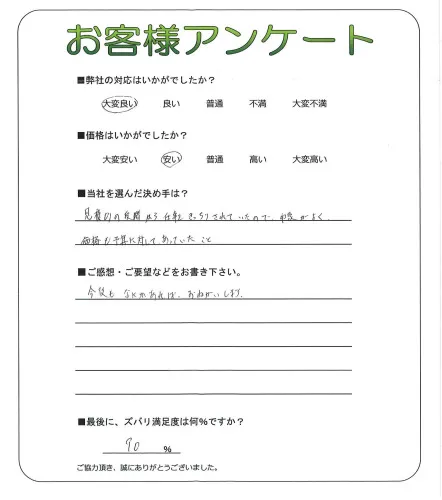 お客様アンケート
■弊社の対応はいかがでしたか？
大変良い 良い 普通 不満 大変不満
■価格はいかがでしたか？
大変安い 安い 普通 高い 大変高い
■当社を選んだ決め手は？
見積りの段階から仕事をきっちりされていたので、印象がよく、
価格も予算に対してあっていたこと
■ご感想・ご要望などをお書き下さい。
今後もなにかあれば、おねがいします。
■最後に、ズバリ満足度は何％ですか？
90 %
ご協力頂き、誠にありがとうございました。